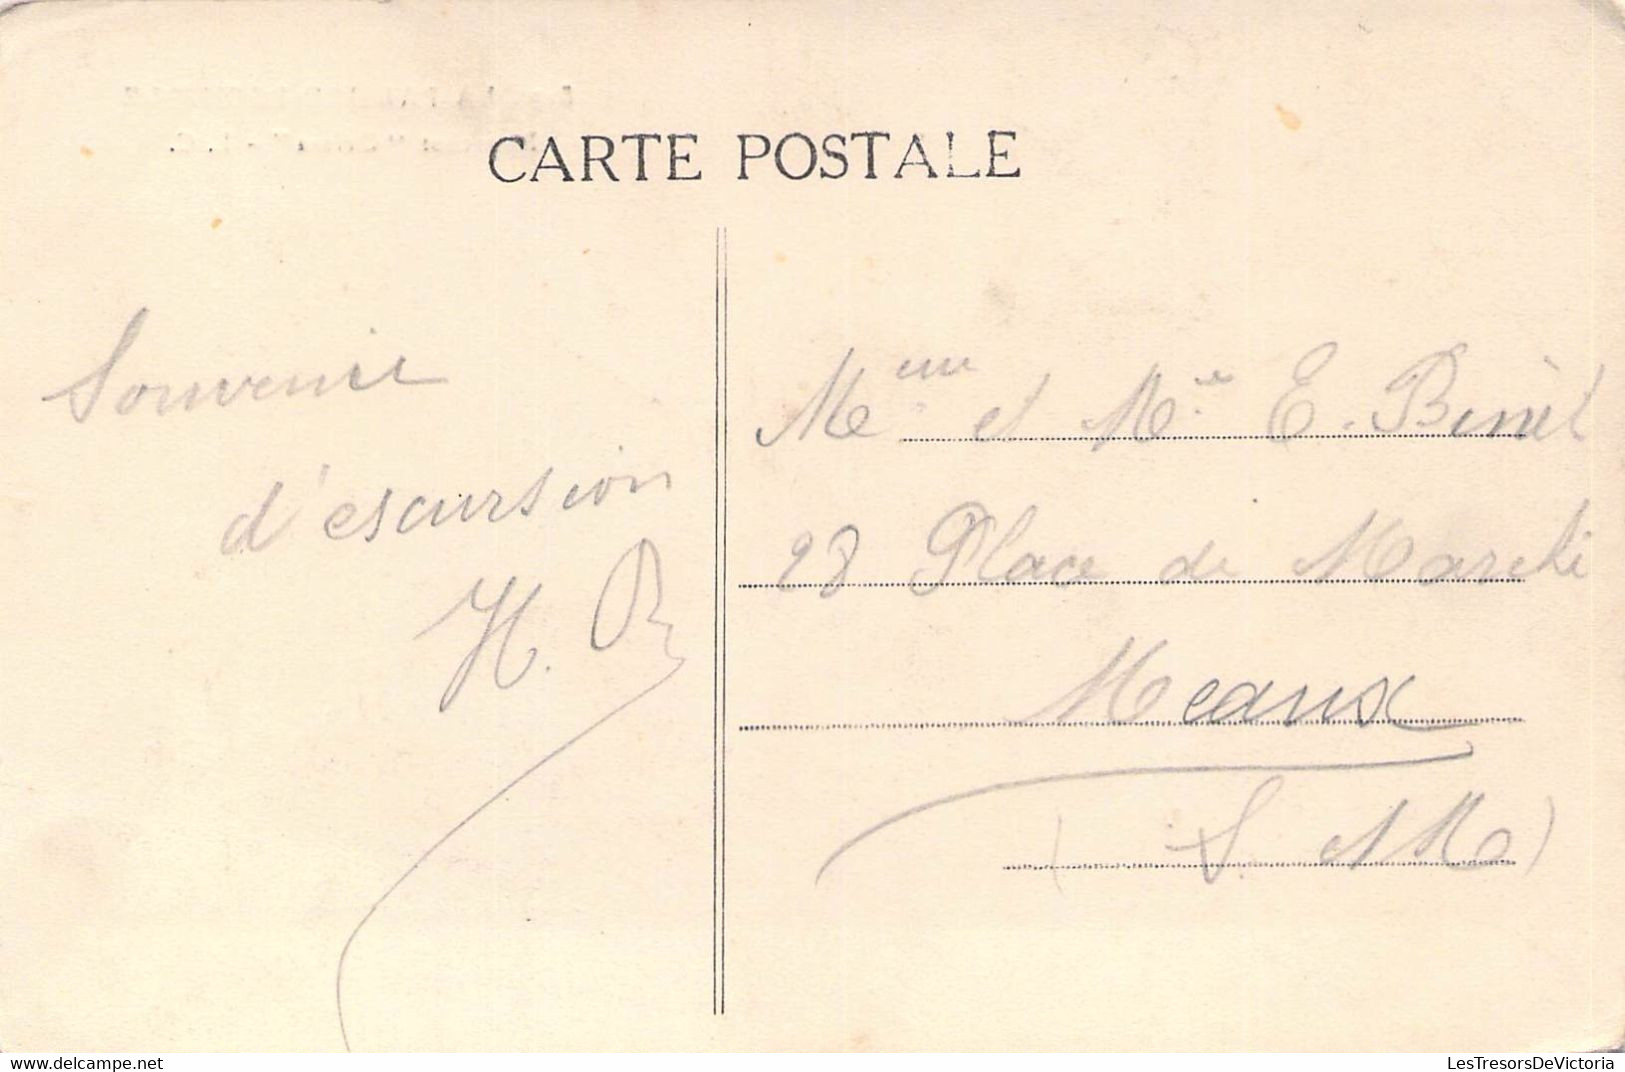 CARTE POSTALE
Souvenir
d'escursion
H. B
Mme et Mle E. Binèt
28 Place de Marché
Meaux
(S. et M)
www.delcampe.net
LesTresorsDeVictoria